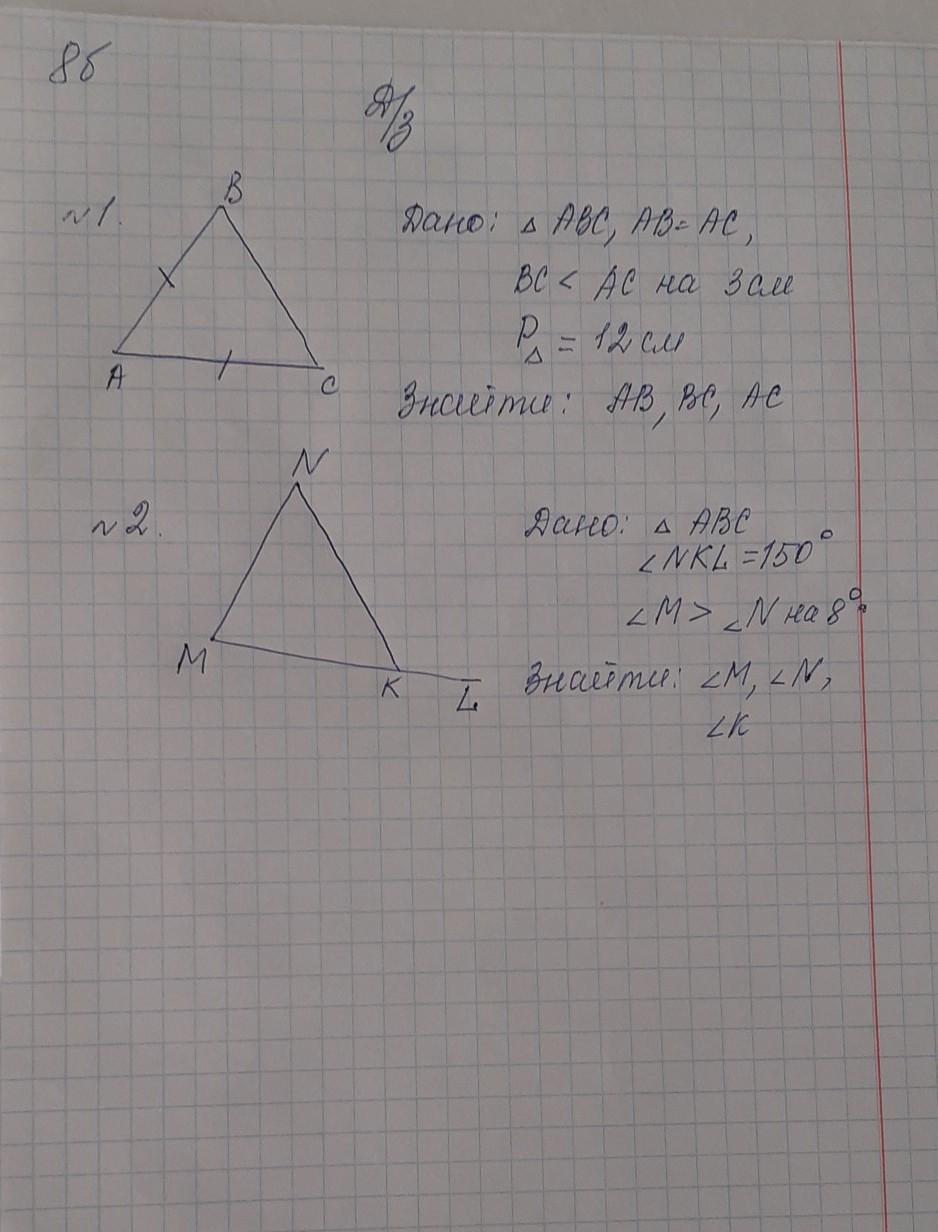 8б
Д/з
№1.
B
A
C
Дано: △ ABC, AB = AC,
BC < AC на 3 см
P△ = 12 см
Знайти: AB, BC, AC
№2.
N
M
K
L
Дано: △ ABC
∠NKL = 150°
∠M > ∠N на 8°
Знайти: ∠M, ∠N,
∠K